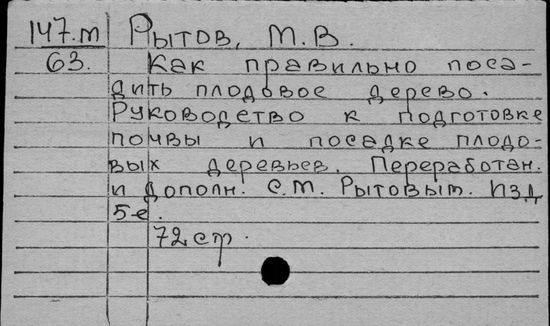 147.м Рытов, М.В.
63. Как правильно поса-
дить плодовое дерево.
Руководство к подготовке
почвы и посадке плодо-
вых деревьев. Переработан.
и дополн. С.М. Рытовым. Изд
5-е.
72 стр.